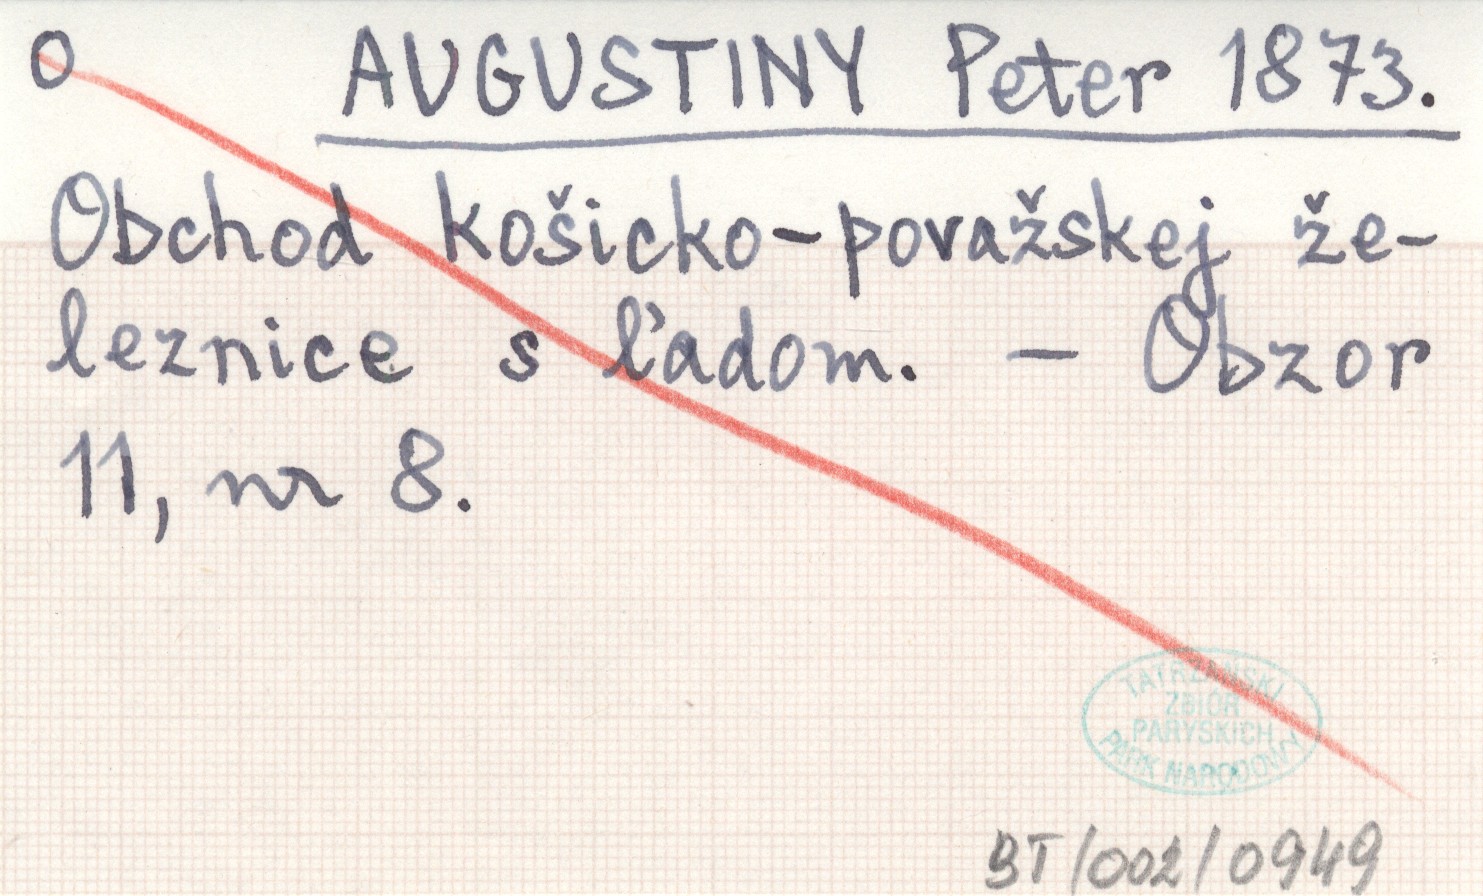 O AUGUSTINY Peter 1873.
Obchod košicko-považskej že-
leznice s ľadom. – Obzor
11, nr 8.
TATRZAŃSKI
ZBIÓR
PARYSKICH
PARK NARODOWY
BT/002/0949